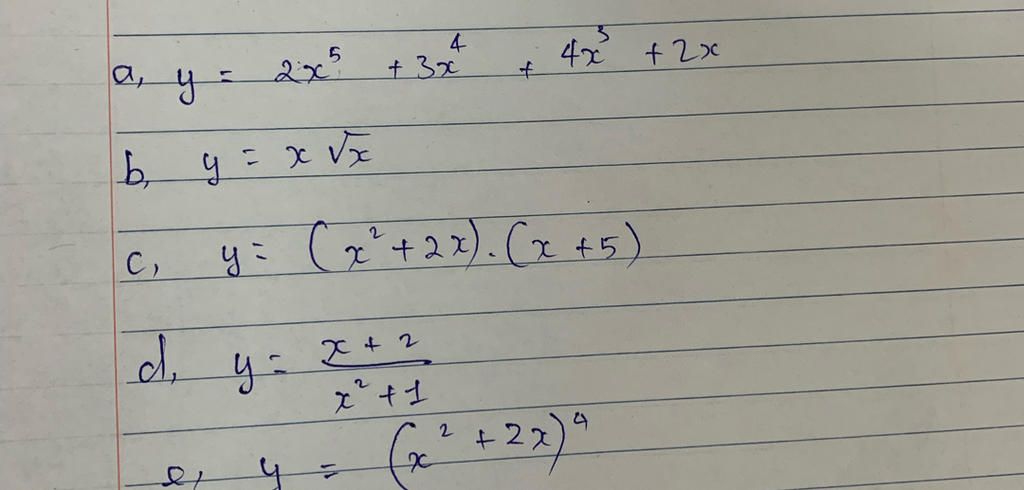 a, y = 2x⁵ + 3x⁴ + 4x³ + 2x
b, y = x √x
c, y = (x² + 2x).(x + 5)
d, y = (x + 2)/(x² + 1)
e, y = (x² + 2x)⁴